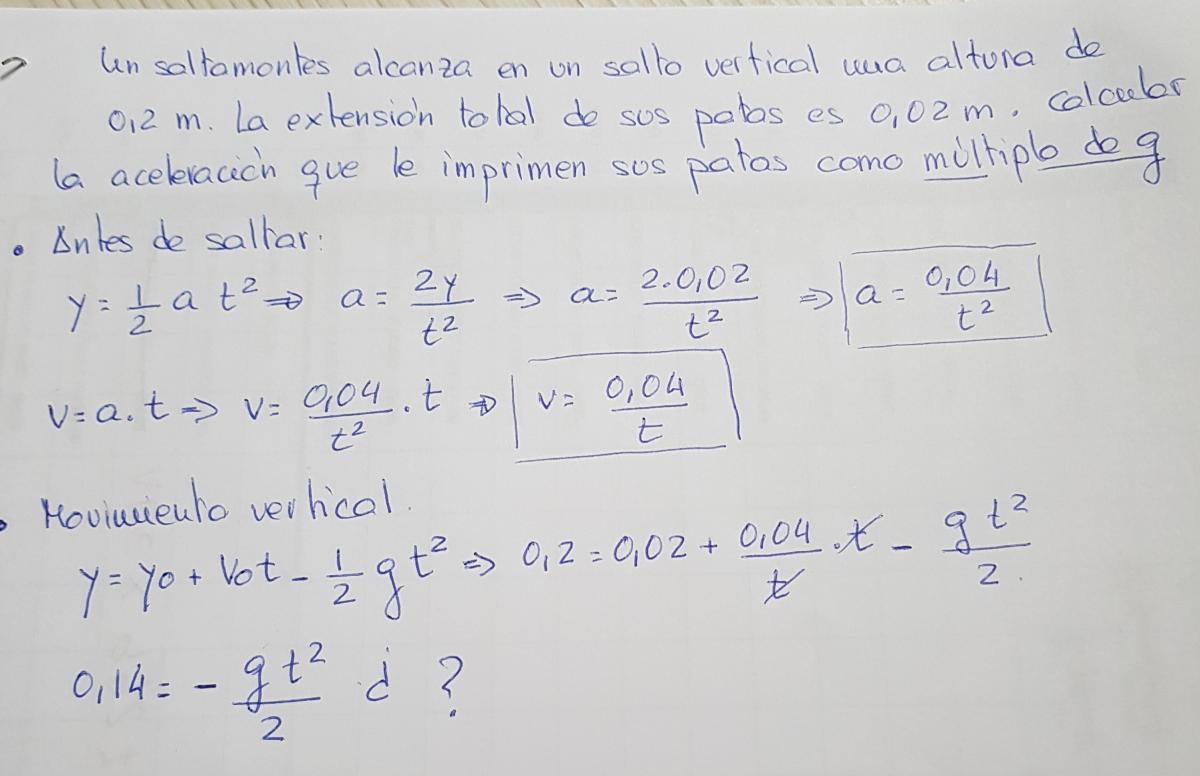 Un saltamontes alcanza en un salto vertical una altura de
0,2 m. La extensión total de sus patas es 0,02 m. Calcular
la aceleración que le imprimen sus patas como múltiplo de g
• Antes de saltar:
y = 1/2 a t² ⇒ a = 2y/t² ⇒ a = 2·0,02/t² ⇒ a = 0,04/t²
v = a.t ⇒ v = 0,04/t² . t ⇒ v = 0,04/t
• Movimiento vertical.
y = y0 + v0t - 1/2 g t² ⇒ 0,2 = 0,02 + 0,04/t .t - g t²/2.
0,14 = - g t²/2 ¿ ?